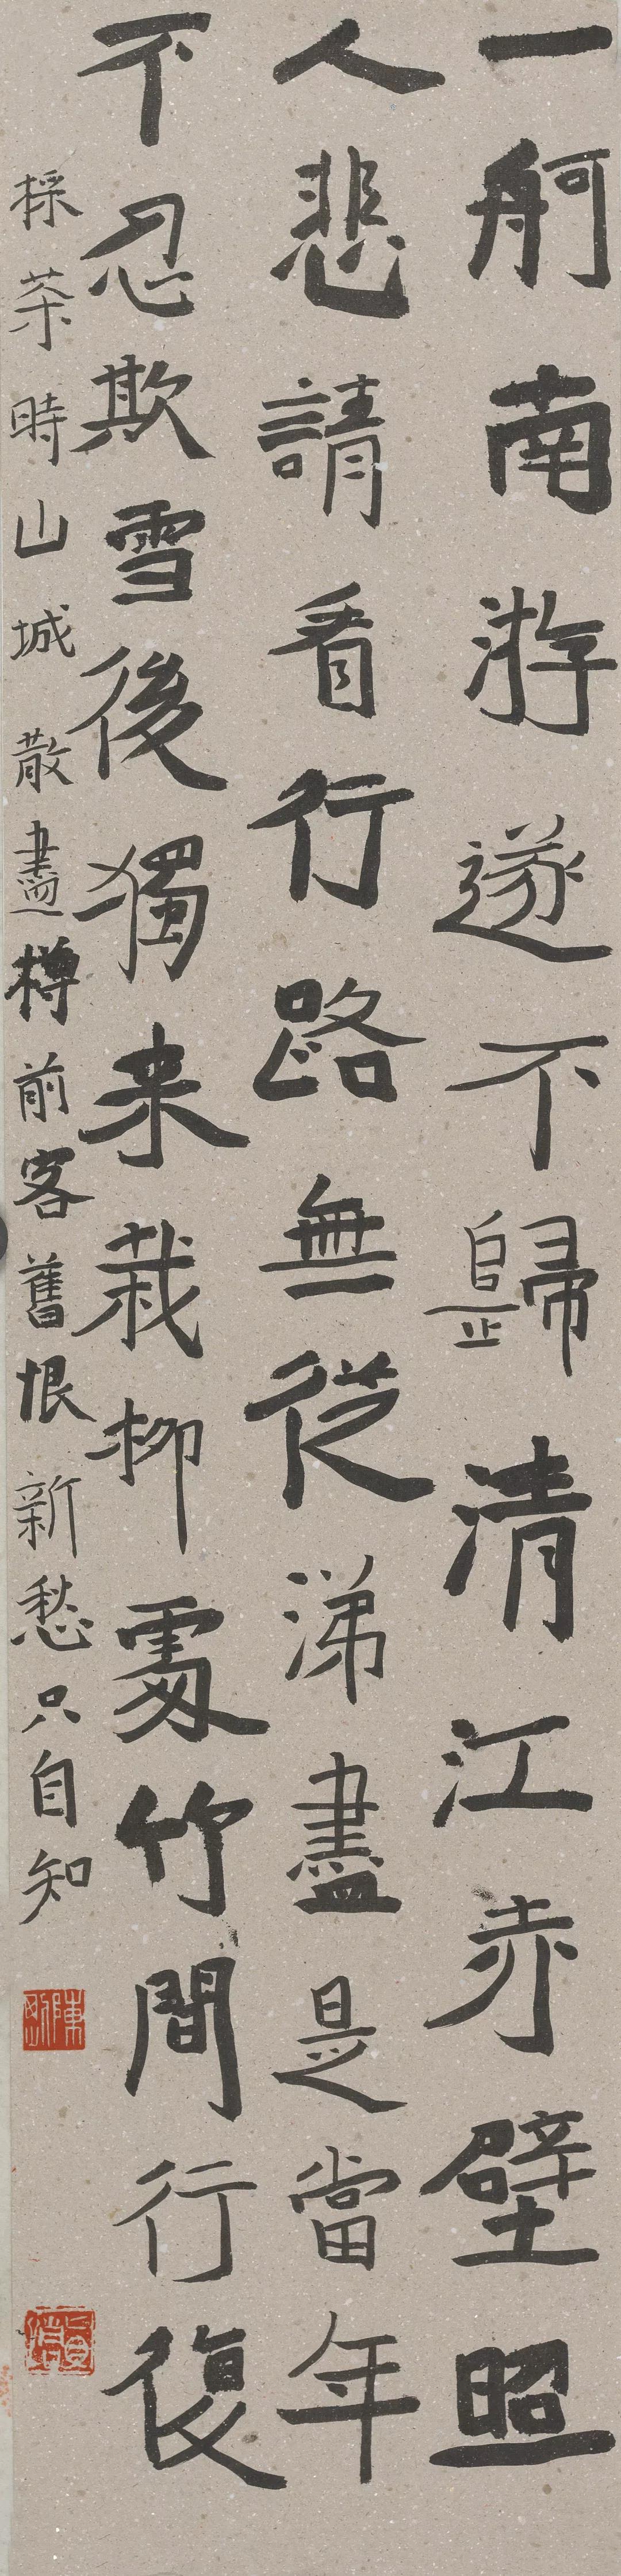 一舸南游遂不歸清江赤壁照
人悲請看行路無從涕盡是當年
不忍欺雪後獨来栽柳處竹間行復
採茶時山城散盡樽前客舊恨新愁只自知